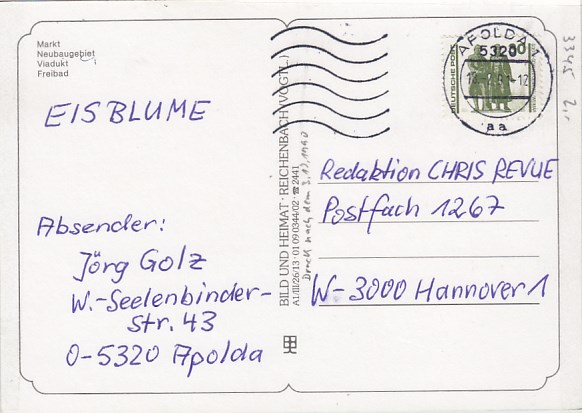 Markt
Neubaugebiet
Viadukt
Freibad
EISBLUME
Absender:
Jörg Golz
W.-Seelenbinder-
Str. 43
O-5320 Apolda
BILD UND HEIMAT · REICHENBACH (VOGTL.)
A1/III/26/13 · 01 09 0344/02 · ☎ 2441
Druck nach dem 3.10.1990
APOLDA 1
5320
aa
DEUTSCHE POST
Redaktion CHRIS REVUE
Postfach 1267
W-3000 Hannover 1
3345